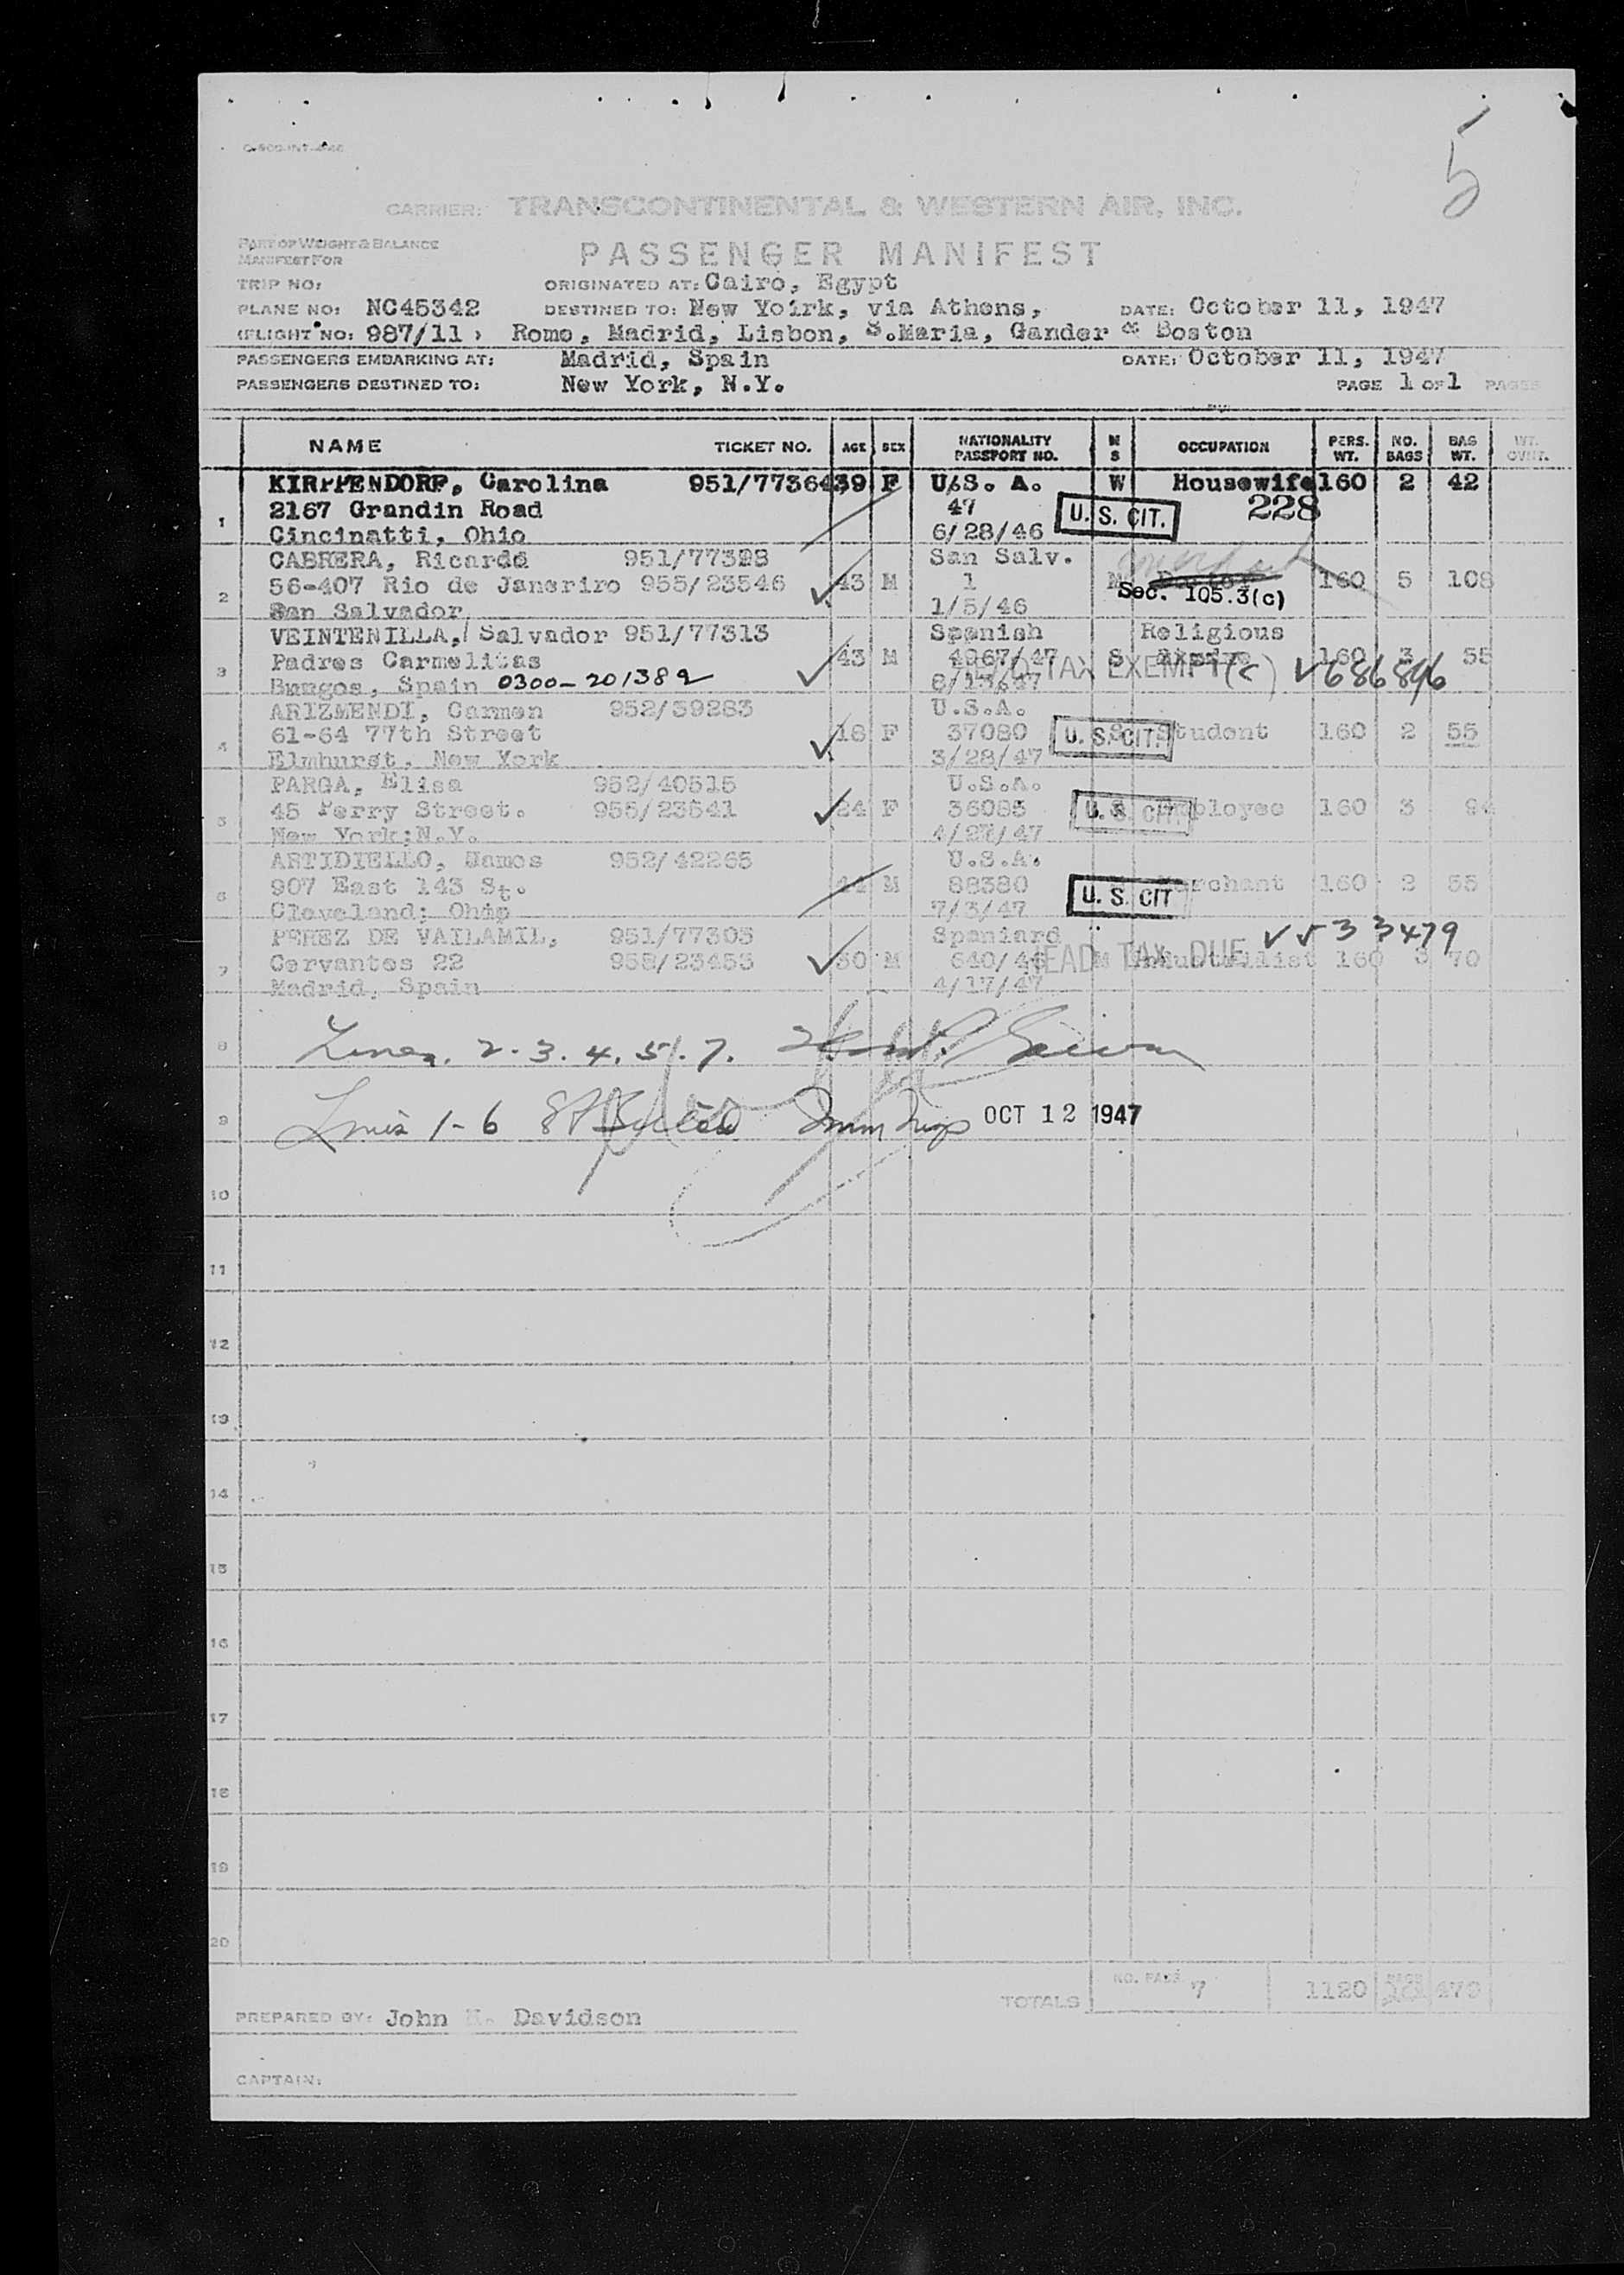 5
CARRIER: TRANSCONTINENTAL & WESTERN AIR, INC.
PART OF WEIGHT & BALANCE
MANIFEST FOR
PASSENGER MANIFEST
TRIP NO: ORIGINATED AT: Cairo, Egypt
PLANE NO: NC45342 DESTINED TO: New Yoirk, via Athens, DATE: October 11, 1947
(FLIGHT NO: 987/11 ) Rome, Madrid, Lisbon, S.Maria, Gander & Boston
PASSENGERS EMBARKING AT: Madrid, Spain DATE: October 11, 1947
PASSENGERS DESTINED TO: New York, N.Y. PAGE 1 OF 1 PAGES
NAME TICKET NO. AGE SEX NATIONALITY PASSPORT NO. M S OCCUPATION PERS. WT. NO. BAGS BAG WT. WT. OVWT.
KIRPPENDORF, Carolina 951/7736439 F U.S. A. W Housewife 160 2 42
2167 Grandin Road 47 U.S. CIT. 228
1 Cincinatti, Ohio 6/28/46
CABRERA, Ricardo 951/77398 San Salv.
56-407 Rio de Janeriro 955/23546 43 M 1 M 160 5 108
2 San Salvador 1/5/46 Sec. 105.3(c)
VEINTENILLA, Salvador 951/77313 Spanish Religious
Padres Carmelitas 43 M 4967/47 S 160 3 55
3 Burgos, Spain 0300-201389 TAX EXEMPT (c) 686896
ARIZMENDI, Carmen 952/39283 U.S.A.
61-64 77th Street 18 F 37080 S Student 160 2 55
4 Elmhurst, New York 3/28/47 U.S. CIT.
PARGA, Elisa 952/40515 U.S.A.
45 Perry Street. 955/23541 24 F 36085 Employee 160 3 94
5 New York;N.Y. 4/27/47 U.S. CIT.
ARTIDIELLO, Ramos 952/42265 U.S.A.
907 East 143 St. 44 M 88380 Merchant 160 2 55
6 Cleveland; Ohio 7/3/47 U.S. CIT
PEREZ DE VAILAMIL, 951/77305 Spaniard 33479
Cervantes 22 958/23453 50 M 640/46 M Industrialist 160 3 70
7 Madrid, Spain 4/17/47 HEAD TAX DUE
8 Lines. 2. 3. 4. 5. 7.
9 Lines 1-6 Imm Insp OCT 12 1947
10
11
12
13
14
15
16
17
18
19
20
TOTALS NO. PASS. 7 1120 BAGS 20 479
PREPARED BY: John H. Davidson
CAPTAIN: